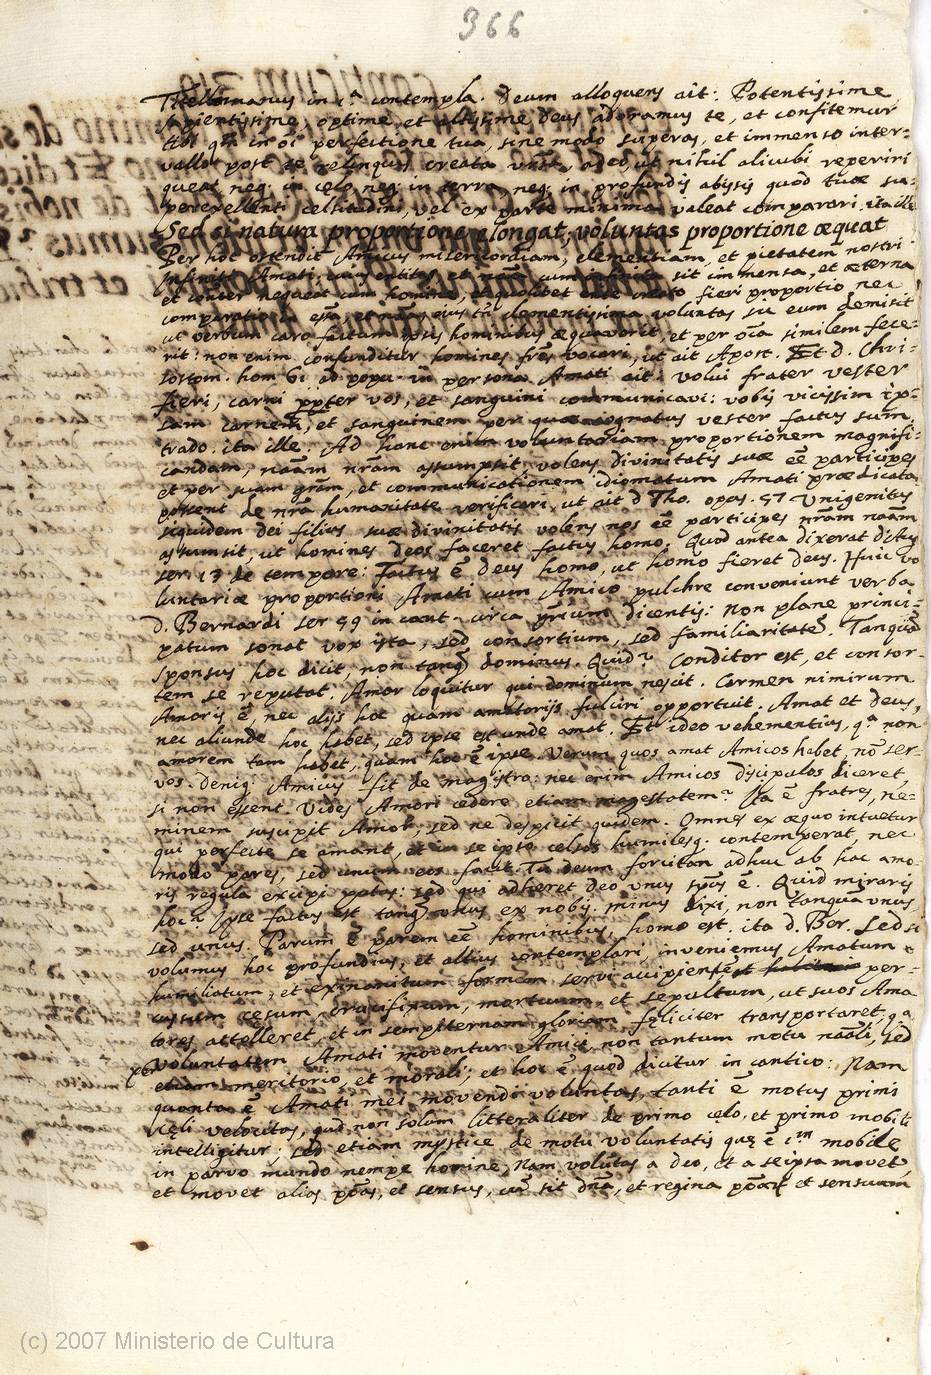 366
Titelmanus in 1.ª contempla. Deum alloquens ait: Potentissime
sapientissime, optime, et altissime deus adoramus te, et confitemur
tibi qm̃ in oĩ perfectione tua, sine modo superas, et immenso inter=
vallo post te relinquis creata universa, adeo, ut nihil alicubi reperiri
queat neq. in cęlo, neq. in terra, neq. in profundis abyssis quod tuæ su=
perexcellenti celsitudini, vel ex parte minima valeat comparari. ita ille
Sed si natura proportione elongat, voluntas proportione æquat
Per hoc ostendit Amicus misericordiam, clementiam, et pietatem nostri
infiniti Amati, cuius entitas, et nãa cum infinita sit immensa, et æterna
et conter nequeat cum homine, et quolibet ente creato fieri proportio nec
comparatio in essa, et nãa, eius tñ clementissima voluntas sic eum demisit
ut verbum caro factum ipsis hominibus æquaverit, et per oĩa similem fece=
rit: non enim confunditur homines frẽs vocari, ut ait Apost. Et D. Chri=
sostom. hom 61 ad popu. in persona Amati ait: volui frater vester
fieri, carni ppter vos, et sanguini communicavi: vobis vicissim ip=
sam carnem, et sanguinem per quæ cognatus vester factus sum,
trado. ita ille. Ad hanc enim voluntariam proportionem magnifi=
candam, nãam nr̃am assumpsit, volens divinitatis suæ eẽ participes
et per suam grãm, et communicationem idiomatum Amati prædicata
possent de nr̃a humanitate verificari, ut ait d Tho. opus. 57 Unigenitus
siquidem dei filius suæ divinitatis volens nos eẽ participes nr̃am nãam
assumsit, ut homines deos faceret factus homo. Quod antea dixerat d. Aug
ser. 13 de tempore: Factus ẽ deus homo, ut homo fieret deus. Huic vo
luntariæ proportioni Amati cum Amico pulchre conveniunt verba
d. Bernardi ser 59 in cant. circa dicentis: Non plane princi=
patum sonat vox ista, sed consortium, sed familiaritatẽ. Tanquã
sponsus hoc dicit, non tanq̃ dominus. Quid? Conditor est, et consor=
tem se reputat. Amor loquitur qui dominum nescit. Carmen nimirum
Amoris ẽ, nec alijs hoc quam amatorijs fulciri opportuit. Amat et deus,
nec aliunde hoc habet, sed ipse est unde amat. Et ideo vehementius, qª non
amorem tam habet, quam hoc ẽ ipse. Verum quos amat Amicos habet, nõ ser=
vos. Deniq. Amicus fit de magistro: nec enim Amicos discipulos diceret,
si non essent. Vides Amori cedere etiam magestatem? Ita ẽ fratres, ne=
minem suscipit Amor, sed ne despicit quidem. Omnes ex æquo intuetur
qui perfecte se amant, et in se ipso celsos humilesq. contemperat, nec
modo pares, sed unum eos facit. Tu deum forsitan adhuc ab hac amo=
ris regula excipi putas: sed qui adhæret deo unus spũs ẽ. Quid miraris
hoc? Ipse factus est tanq̃ unus ex nobis. minus dixi, non tanquã unus
sed unus. Parum ẽ parem eẽ hominibus, homo est. ita d. Ber. Sed si
volumus hoc profundius, et altius contemplari, inveniemus Amatum
humiliatum, et exinanitum formam servi accipientẽ per=
cussum cęsum, crucifixum, mortuum, et sepultum, ut suos Ama
tores attolleret, et in sempiternam gloriam fęliciter transportaret, qª
voluntatem Amati moventur Amici, non tantum motu nãali, sed
etiam meritorio, et morali; et hoc ẽ quod dicitur in cantico: Nam
quanta ẽ Amati mei movendi voluntas, tanti ẽ motus primi
cęli velocitas, quod non solum litteraliter de primo cęlo, et primo mobili
intelligitur; sed etiam mystice de motu voluntatis quę ẽ 1m mobile
in parvo mundo nempe homine, Nam voluntas a deo, et a se ipsa movet,
et movet alias põas, et sensus, cũ sit dña, et regina põarũ et sensuum
(c) 2007 Ministerio de Cultura